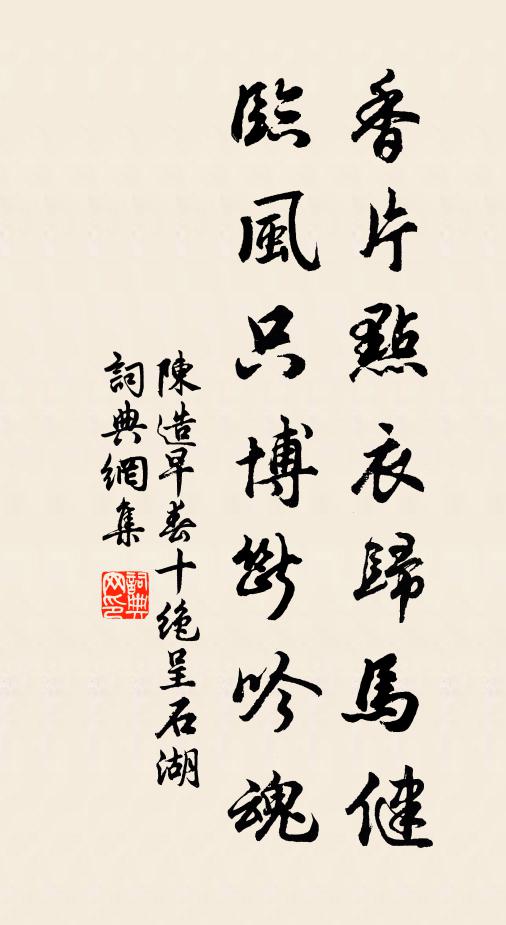 香片點衣歸馬健
臨風只博斷吟魂
陳造早春十絶呈石湖
詞典網集
詞典网印